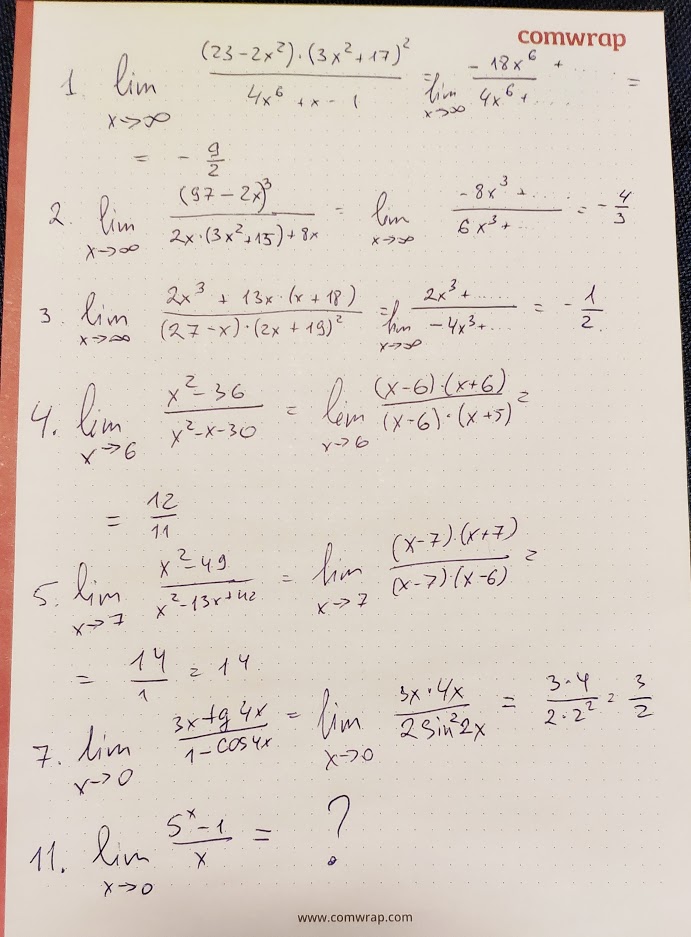 comwrap
1. lim x→∞ (23-2x²)·(3x²+17)² / 4x⁶+x-1 = lim x→∞ -18x⁶+..... / 4x⁶+..... =
= - 9/2
2. lim x→∞ (97-2x)³ / 2x·(3x²+15)+8x = lim x→∞ -8x³+..... / 6x³+... = - 4/3
3. lim x→∞ 2x³+13x·(x+18) / (27-x)·(2x+19)² = lim x→∞ 2x³+..... / -4x³+... = - 1/2
4. lim x→6 x²-36 / x²-x-30 = lim x→6 (x-6)·(x+6) / (x-6)·(x+5) =
= 12/11
5. lim x→7 x²-49 / x²-13x+42 = lim x→7 (x-7)·(x+7) / (x-7)·(x-6) =
= 14/1 = 14
7. lim x→0 3x tg 4x / 1-cos4x = lim x→0 3x·4x / 2sin²2x = 3·4 / 2·2² = 3/2
11. lim x→0 5ˣ-1 / x = ?
www.comwrap.com